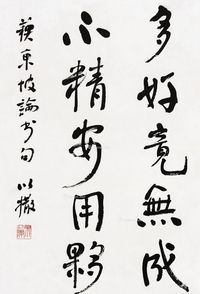 多好竟無成
不精安用夥
蘇東坡論書句 以撒